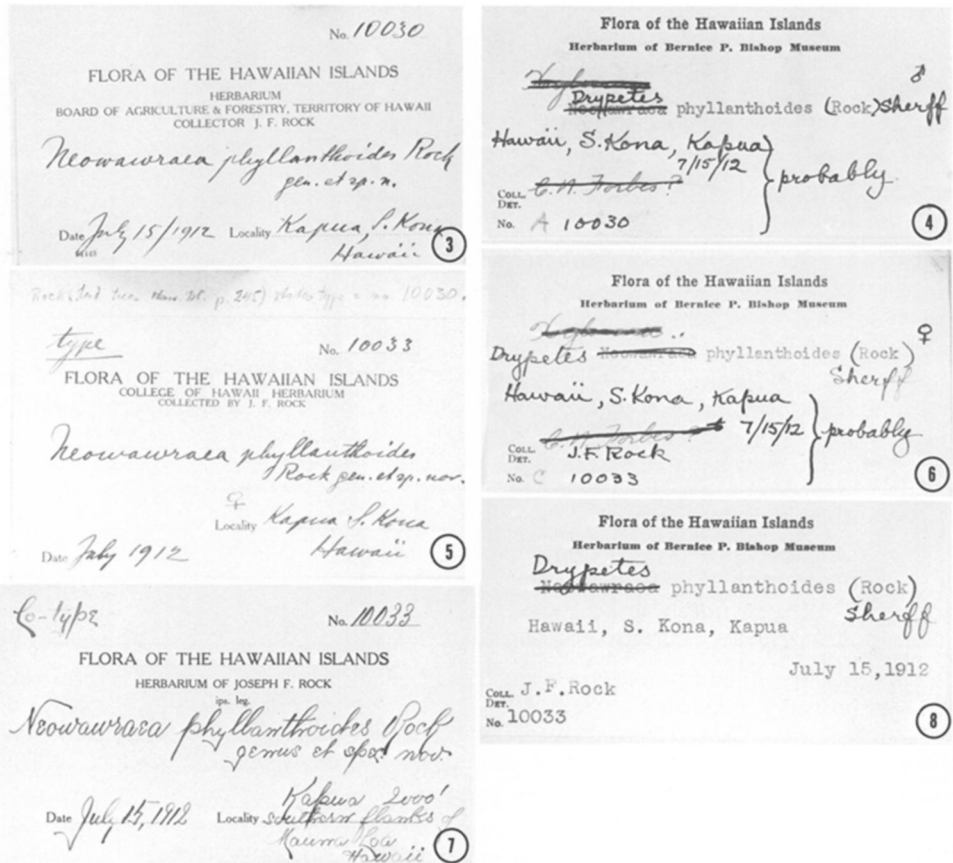 No. 10030
FLORA OF THE HAWAIIAN ISLANDS
HERBARIUM
BOARD OF AGRICULTURE & FORESTRY, TERRITORY OF HAWAII
COLLECTOR J. F. ROCK
Neowawraea phyllanthoides Rock
gen. et sp. n.
Date July 15/1912 Locality Kapua, S. Kona
Hawaii
3
Rock (Ind. trees Haw. Isl. p. 245) states type = no. 10030.
type
No. 10033
FLORA OF THE HAWAIIAN ISLANDS
COLLEGE OF HAWAII HERBARIUM
COLLECTED BY J. F. ROCK
Neowawraea phyllanthoides
Rock gen. et sp. nov.
♀
Locality Kapua S. Kona
Date July 1912 Hawaii
5
Co-type
No. 10033
FLORA OF THE HAWAIIAN ISLANDS
HERBARIUM OF JOSEPH F. ROCK
ips. leg.
Neowawraea phyllanthoides Rock
genus et spec. nov.
Date July 15, 1912 Locality Kapua 2000'
southern flanks of
Mauna Loa
Hawaii
7
Flora of the Hawaiian Islands
Herbarium of Bernice P. Bishop Museum
♂
Drypetes
Neowawraea phyllanthoides (Rock) Sherff
Hawaii, S. Kona, Kapua
7/15/12
probably
COLL. C. N. Forbes?
DET.
No. A 10030
4
Flora of the Hawaiian Islands
Herbarium of Bernice P. Bishop Museum
♀
Drypetes Neowawraea phyllanthoides (Rock)
Sherff
Hawaii, S. Kona, Kapua
7/15/12 probably
COLL. C. N. Forbes?
DET. J.F. Rock
No. C 10033
6
Flora of the Hawaiian Islands
Herbarium of Bernice P. Bishop Museum
Drypetes
Neowawraea phyllanthoides (Rock)
Sherff
Hawaii, S. Kona, Kapua
July 15,1912
COLL. J.F.Rock
DET.
No. 10033
8